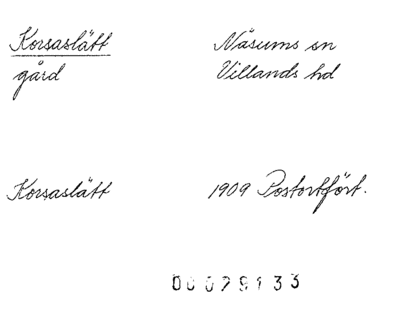 Korsaslätt Näsums sn
gård Villands hd
Korsaslätt 1909 Postortfört.
00029133